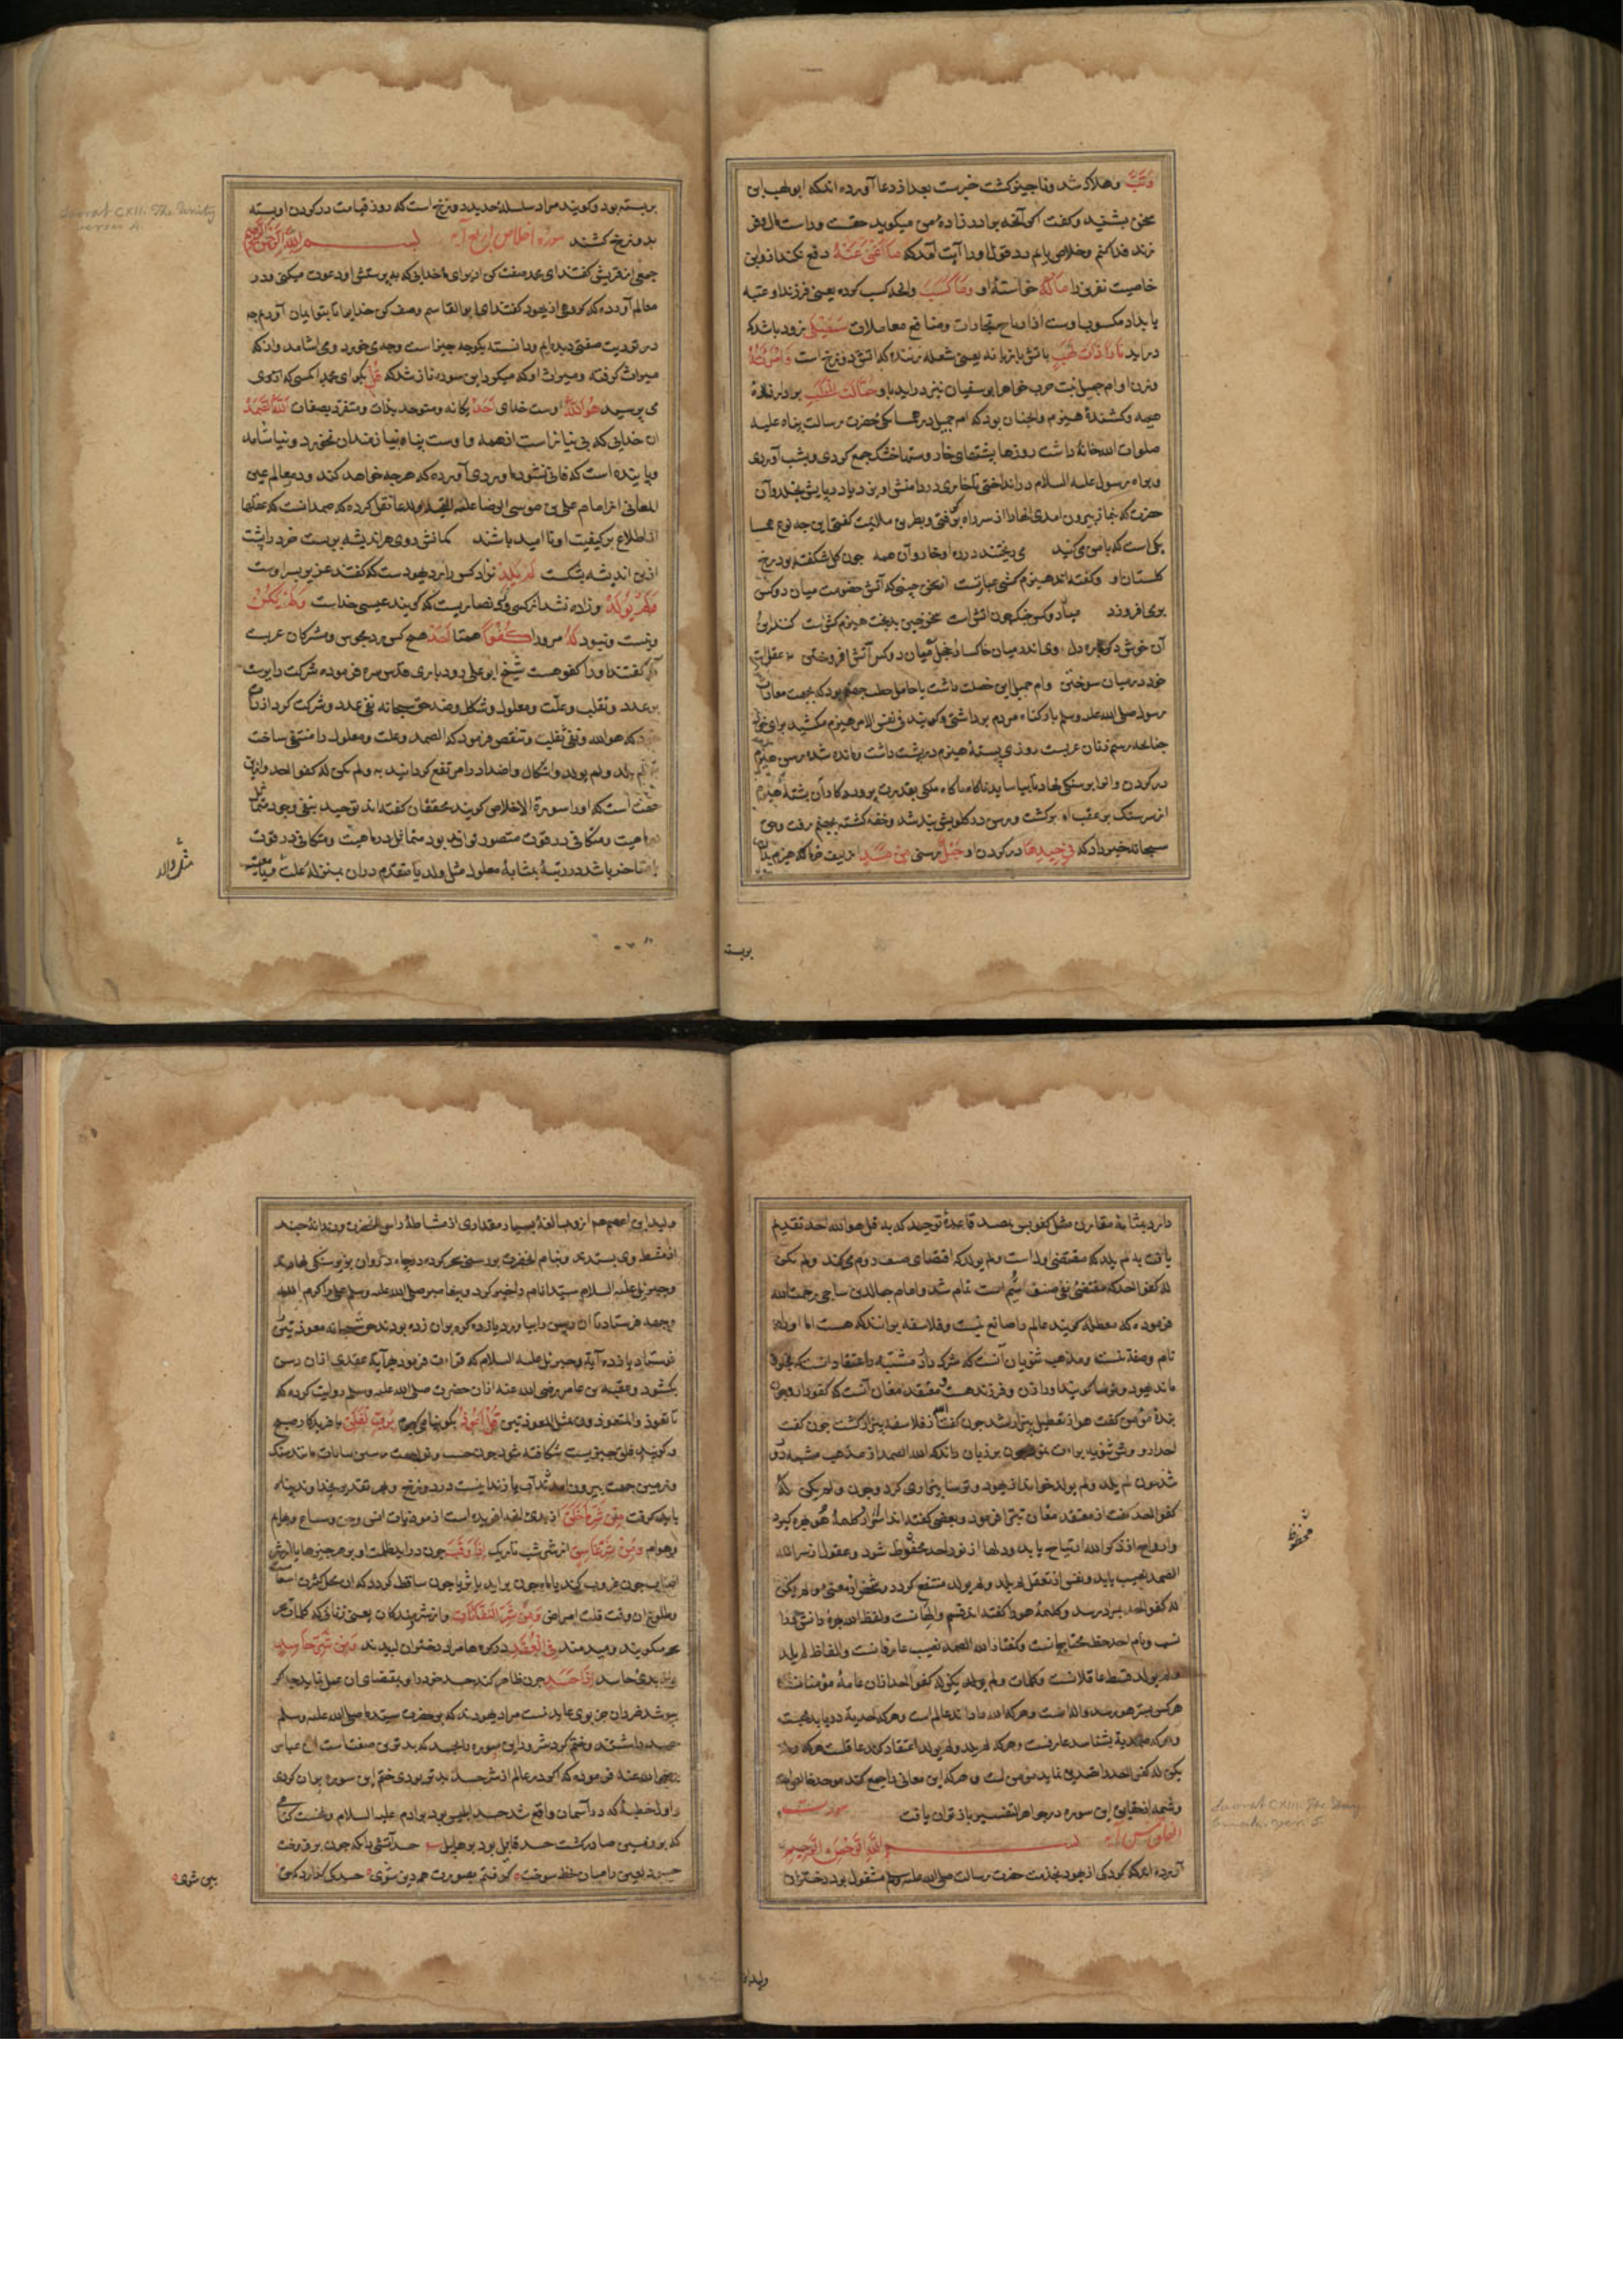 وَتَبَّ وهلاك شد وناچیز کشت خبرست بعد از دعا آورده اندکه ابولهب این
سخن بشنید وکفت اکر آنچه برادرزادۀ من میکوید حقست
فدا کنم وخلاص یابم رد قول اورا آیت آمدکه مَا اَغْنٰی عَنْهُ دفع نکند ازو این
مَالُهُ خواستۀ او وَمَا کَسَبَ وانچه کسب کرده یعنی فرزند او عتبه
ومنافع معاملات سَیَصْلٰی زود باشدکه
دراید نَارًا ذَاتَ لَهَبٍ باتش بازبانه یعنی شعله زننده که اتش دوزخ است وَامْرَاَتُهُ
وزن او ام جمیل بنت حرب خواهر ابوسفیان نیز دراید باو حَمَّالَةَ الْحَطَبِ بردارندۀ
هیمه وکشندۀ هیزم وانچنان بودکه ام جمیل در همسایکی حضرت رسالت پناه علیه
صلوات الله خانۀ داشت روزها پشتهای خار وخشک جمع کردی وبشب آوردی
وبراه رسول علیه السلام درانداختی تا خاری در دامنش اویزد یا در پایش خلد وآن
حضرت که بنماز بیرون امدی انهارا از سر راه برکرفتی وبطریق ملایمت کفتی این چه نوع همسا
یکی است که با من می کنید می ریختند در ره او خار وآن همه چون کل شکفته بود رخ
کلستان او وکفته اند هیزم کشی عبارتست از سخن چینی که آتش خصومت میان دو کس
برمی افروزد میان دو کس جنک چون اتش است سخن چین بدبخت هیزم کش است کنند این
آن خوش دکر باره دل وی اندر میان خاکسار وخجل میان دو کس آتش افروختن نه عقل است
خود در میان سوختن وام جمیل این خصلت داشت یا حامل حطب جهنم بود که بجهت معادات
رسول صلی الله علیه وسلم بار کناه مردم برداشتی وکویند فی نفس الامر هیزم میکشید برای
چنانچه رسم زنان عربست روزی پشتۀ هیزم در پشت داشت ومانده شده رسن هیزم
در کردن وانرا بر سنکی نهاد تا بیاساید
از سر سنک بر عقب او برکشت ورسن در کلویش بند شد وخفه کشته بجهنم رفت وحق
سبحانه خبر داد که فِی جِیدِهَا در کردن او حَبْلٌ رسنی مِنْ مَسَدٍ از لیف خرما که هیزم بدان
بربسته
بربسته بود وکویند مراد سلسلۀ حدید دوزخ است که روز قیامت در کردن او بسته
بدوزخ کشند سورة اخلاص اربع آیه بسم الله الرحمن الرحیم
جمعی از قریش کفتند ای محمد صفت کن از برای ما خدایی که به پرستش او دعوت میکنی ودر
معالم آورده که کروهی از یهود کفتند ای ابوالقاسم وصف کن خدایرا تا بتو ایمان آوریم چه
در توریت صفتش دیده ایم ودانسته بکو چه چیز است وچه می خورد ومی اشامد واز که
میراث کرفته ومیراث او که میکیرد این سوره نازل شد که قُلْ بکو ای محمد انکسی که ازوی
می پرسید هُوَ اللّٰهُ اوست خدای اَحَدٌ یکانه ومتوحد بذات ومتفرد بصفات اَللّٰهُ الصَّمَدُ
ان خدایی که بی نیاز است از همه واوست پناه نیازمندان نخورد ونیاشامد
وپاینده است که فانی نشود آورده که هرچه خواهد کند ودر معالم عین
المعانی از امام علی بن موسی الرضا علیه نقل کرده که صمد انست که عقلها
از اطلاع بر کیفیت او نا امید باشند کمانش روی هر اندیشه بربست خرد را پشت
ازین اندیشه بشکست لَمْ یَلِدْ نزاد کس را رد یهودست که کفتند عزیر پسر اوست
وَلَمْ یُولَدْ وزاده نشد از کسی رد نصاریست که کویند عیسی خداست وَلَمْ یَکُنْ
ونیست ونبود لَهُ مر ورا کُفُوًا همتا اَحَدٌ هیچ کس رد مجوس ومشرکان عربست
که کفتند اورا کفو هست شیخ ابو علی رودباری قدس سره فرموده شرکت را بریست
بر عدد وتقلب وعلت ومعلول وشکل وضد حق سبحانه نفی عدد وشرکت کرد از ذات
که هو الله ونفی تقلب وتنقص فرمود که الصمد وعلت ومعلول را منتفی ساخت
یلد ولم یولد واشکال واضداد را مرتفع کردانید به ولم یکن له کفوا احد وازین
جهت است که اورا سورة الاخلاص کویند محققان کفته اند توحید بنفی وجود
ماهیت ومتکافی در قوت متصور تواند بود متماثل در ماهیت ومتکافی در قوت
یا متاخر باشد در رتبۀ بمثابۀ معلول مثل ولد یا متقدم در ان بمنزلۀ علت
مثل والد
Surat CXII. The Unity
verse 4.
دارد بمثابۀ مقارن مثل کفو پس بصد قاعدۀ توحید که به قل هو الله احد تقدیم
یافت به لم یلد که مقتضی ولد است ولم یولد که اقتضای صنف دوم میکند ولم یکن
له کفوا احد که مقتضی نفی صنف سیم است تمام شد وامام جمال الدین ساجی رحمت الله
فرموده که معطله کویند عالم را صانع نیست وفلاسفه برانند که هست اما اورا
نام وصفت نیست ومذهب ثنویان آنست که شریک دارد مشبهه را اعتقاد انست که بخلق
ماند یهود وترسا کویند اورا زن وفرزند هست ومعتقد مغان آنست که کفو دارد وچون
بندۀ مؤمن کفت هو از تعطیل بیزار شد چون کفت الله از فلاسفه بیزار کشت چون کفت
احد از ثنویه براءت نمود چون بر زبان راند که الله الصمد از مذهب مشبهه دور
شد چون لم یلد ولم یولد خواند از یهود وترسا بیزاری کرد وچون ولم یکن له
کفوا احد کفت از معتقد مغان تبرا فرمود وبعضی کفته اند اسرار از کلمۀ هو بهره کیرد
وارواح از ذکر الله ارتیاح یابد ودلها از نور احد محفوظ شود وعقول از سر الله
الصمد نصیب یابد ونفس از تعقل لم یلد ولم یولد منتفع کردد وشخص از معنی ولم یکن
له کفوا احد بمراد رسد وکلمۀ هو را کفته اند قسم والهانست ولفظ الله بهرۀ
ونام احد حظ محتاجانست وکفته اند الله الصمد نصیب عارفانست والفاظ لم یلد
ولم یولد قسط عاقلانست وکلمات ولم یکن له کفوا احد ازان عامۀ مؤمنانست
هر کس بسر هو رسد والهست وهر که الله را داند عالم است وهر که احدیة دریابد محبست
وهر که صمدیة بشناسد عارفست وهر که لم یلد ولم یولد اعتقاد کند عاقلست هر که ولم
یکن له کفوا احد را تصدیق نماید مؤمن است وهر که این معانی را جمع کند موحد خالص
وشمه از حقایق این سوره در جواهر التفسیر باز توان یافت سورت
الفلق خمس آیه بسم الله الرحمن الرحیم
آورده اند که کودکی از یهود بخدمت حضرت رسالت صلی الله علیه وسلم مشغول بود دختران
محفوظ
Surat CXIII. The Day
break. verse 5.
ولید این
ولید این اعصم هم ازو مبالغۀ بسیار مقداری از مشاطۀ راس انحضرت ودندانۀ چند
از مشط وی بستدند وبنام انحضرت بر رسنی سحر کرده در چاه ذروان بزیر سنکی نهادند
وجبرئیل علیه السلام سید انام را خبر کرد وپیغامبر صلی الله علیه وسلم علی را کرم الله
وجهه فرستاد تا ان رسن را بیاورد یازده کره بران زده بودند حق سبحانه معوذتین
فرستاد یازده آیة وجبرئیل علیه السلام که قراءت فرمود هر آیة عقدی ازان رسن
بکشود وعقبه بن عامر رضی الله عنه ازان حضرت صلی الله علیه وسلم روایت کرده که
ما تعوذ المتعوذون بمثل المعوذتین قُلْ اَعُوذُ بکو پناه می کیرم بِرَبِّ الْفَلَقِ بافریدکار صبح
وکویند فلق چیزیست شکافته شود چون حب ونوی
وزمین جهت بیرون امدن آب یا زندانیست در دوزخ وبهر تقدیر بخداوند پناه
باید کرفت مِنْ شَرِّ مَا خَلَقَ از بدی انچه افریده است از موذیات انس وجن وسباع وبهایم
وهوام وَمِنْ شَرِّ غَاسِقٍ از شر شب تاریک اِذَا وَقَبَ چون دراید ظلمت او
آفتاب چون غروب کند یا ماه چون براید یا ثریا چون ساقط کردد که
وطلوع ان وقت قلت امراض وَمِنْ شَرِّ النَّفَّاثَاتِ واز شر دمندکان یعنی زنانی که کلمات
سحر میکویند ومیدمند فِی الْعُقَدِ در کره ها مراد دختران لبیدند وَمِنْ شَرِّ حَاسِدٍ
واز بدی حاسد اِذَا حَسَدَ چون ظاهر کند حسد خود را وبمقتضای ان عمل نماید چه اکر
بپوشد ضرر ان جز بوی عاید نیست مراد یهودند که بر حضرت سید صلی الله علیه وسلم
حسد داشتند وختم کرد شرور را این سوره بحسد که بدترین صفتهاست ابن عباس
رضی الله عنه فرموده که اکر در عالم از شر حسد بدتر بودی ختم این سوره بران کردی
واول خطیۀ که در آسمان واقع شد حسد ابلیس بود بر ادم علیه السلام ونخست کناهی
که بر زمین صادر کشت حسد قابیل بود بر هابیل حسد آتشی دان که چون برفروخت
حسود لعین را همان لحظه سوخت کرفتم بصورت همه دین شوی حسد کی کذارد که حق
بین شوی